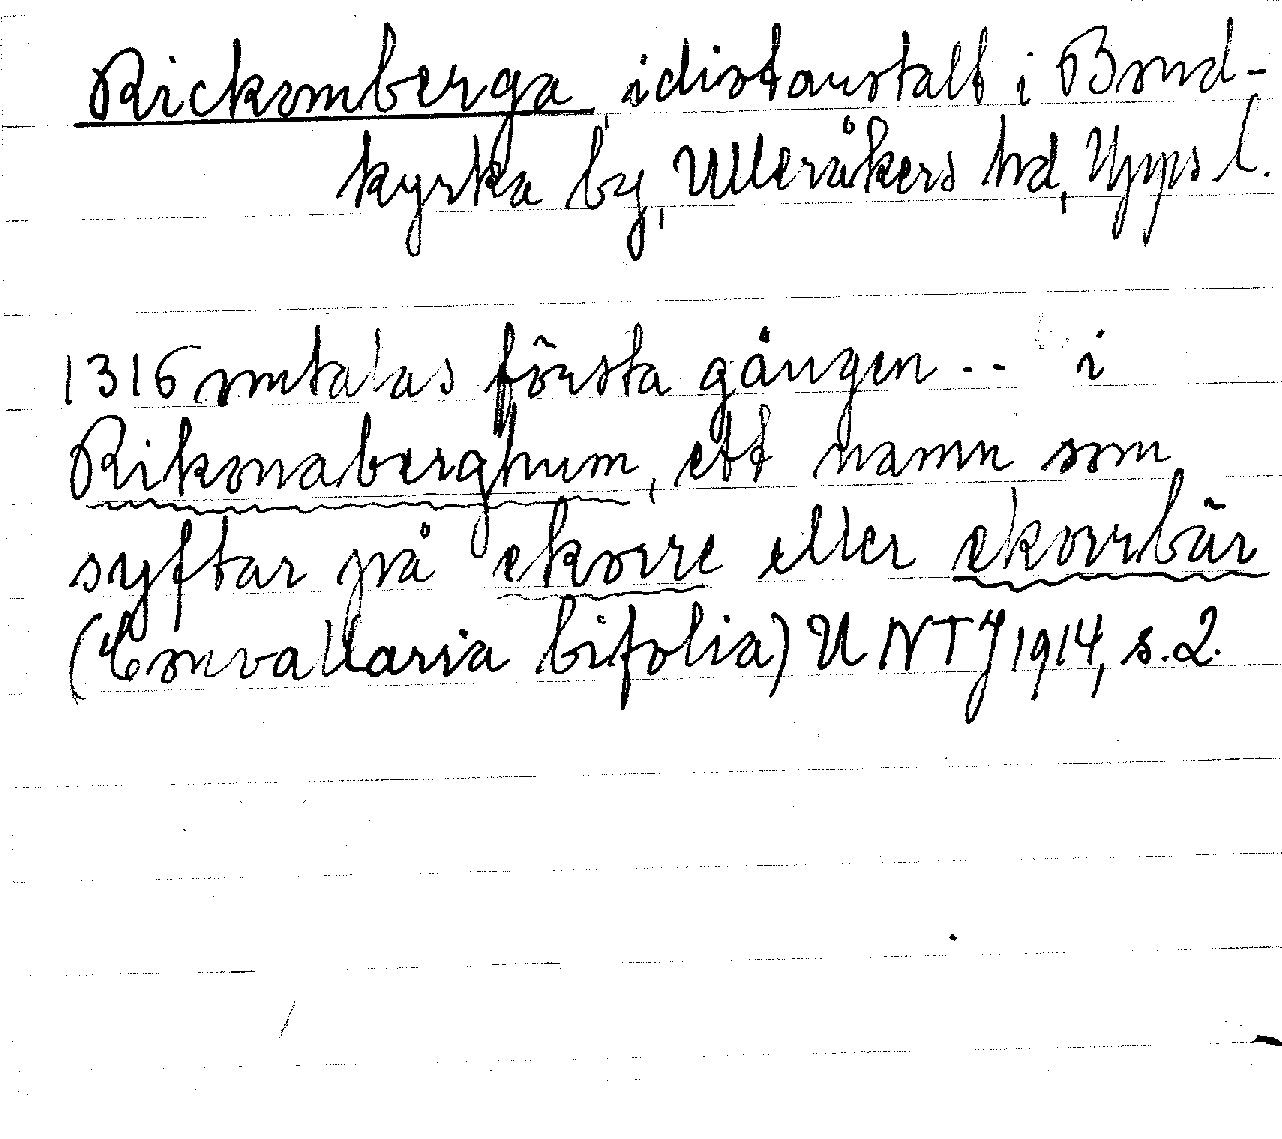 Rickomberga, idiotanstalt i Bond-
kyrka by, Ulleråkers hd, Upps l.
1316 omtalas första gången .. i
Rikonaberghum, ett namn som
syftar på ekorre eller ekorrbär
(Convallaria bifolia) UNTJ 1914, s. 2.